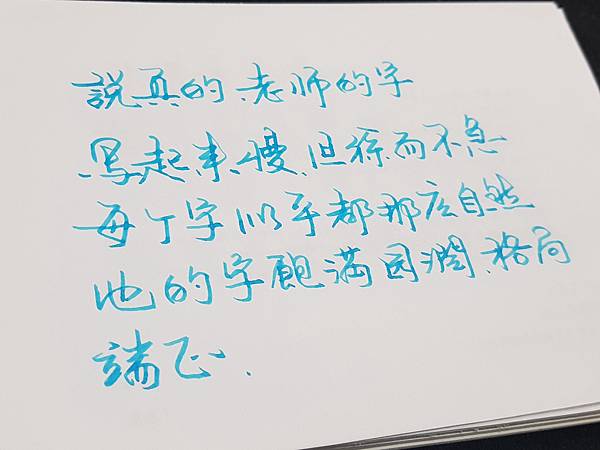 說真的、老师的字
写起来慢、但徐而不急
每个字似乎都那么自然
他的字飽满园潤、格局
端正、